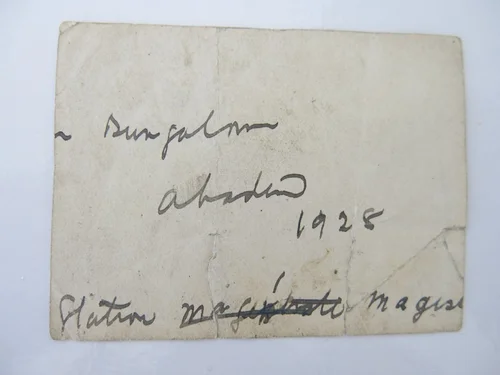 n Bungalow
Abadan
1928
Station Magistrate Magis